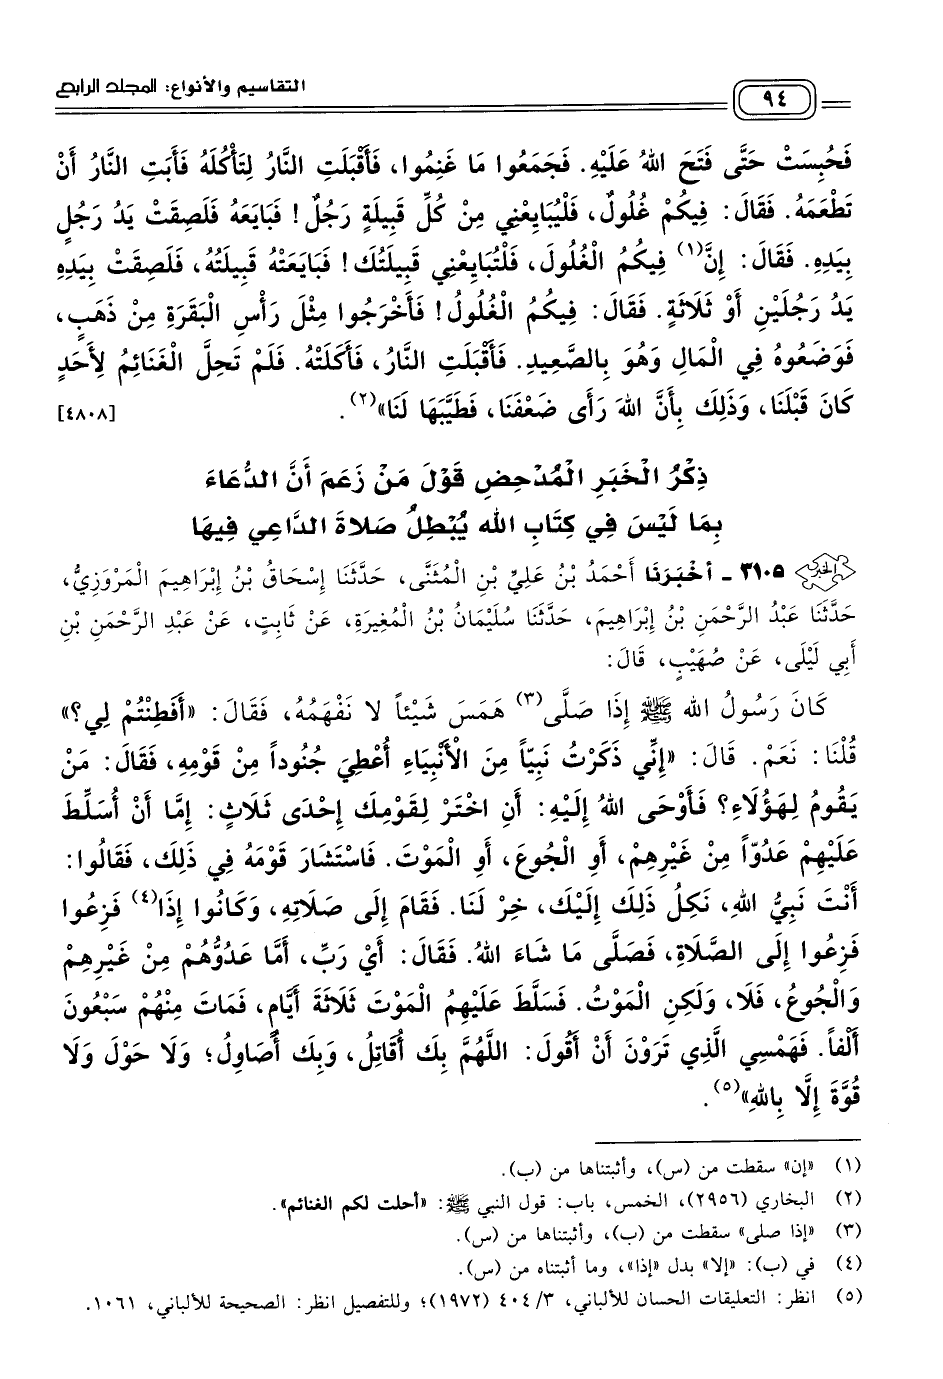 التقاسيم والأنواع: المجلد الرابع
٩٤
فَحُبِسَتْ حَتَّى فَتَحَ اللهُ عَلَيْهِ. فَجَمَعُوا مَا غَنِمُوا، فَأَقْبَلَتِ النَّارُ لِتَأْكُلَهُ فَأَبَتِ النَّارُ أَنْ
تَطْعَمَهُ. فَقَالَ: فِيكُمْ غُلُولٌ، فَلْيُبَايِعْنِي مِنْ كُلِّ قَبِيلَةٍ رَجُلٌ! فَبَايَعَهُ فَلَصِقَتْ يَدُ رَجُلٍ
بِيَدِهِ. فَقَالَ: إِنَّ(١) فِيكُمُ الْغُلُولَ، فَلْتُبَايِعْنِي قَبِيلَتُكَ! فَبَايَعَتْهُ قَبِيلَتُهُ، فَلَصِقَتْ بِيَدِهِ
يَدُ رَجُلَيْنِ أَوْ ثَلَاثَةٍ. فَقَالَ: فِيكُمُ الْغُلُولُ! فَأَخْرَجُوا مِثْلَ رَأْسِ الْبَقَرَةِ مِنْ ذَهَبٍ،
فَوَضَعُوهُ فِي الْمَالِ وَهُوَ بِالصَّعِيدِ. فَأَقْبَلَتِ النَّارُ، فَأَكَلَتْهُ. فَلَمْ تَحِلَّ الْغَنَائِمُ لِأَحَدٍ
كَانَ قَبْلَنَا، وَذَلِكَ بِأَنَّ اللهَ رَأَى ضَعْفَنَا، فَطَيَّبَهَا لَنَا»(٢). [٤٨٠٨]
ذِكْرُ الْخَبَرِ الْمُدْحِضِ قَوْلَ مَنْ زَعَمَ أَنَّ الدُّعَاءَ
بِمَا لَيْسَ فِي كِتَابِ اللهِ يُبْطِلُ صَلَاةَ الدَّاعِي فِيهَا
٣١٠٥ - أَخْبَرَنَا أَحْمَدُ بْنُ عَلِيِّ بْنِ الْمُثَنَّى، حَدَّثَنَا إِسْحَاقُ بْنُ إِبْرَاهِيمَ الْمَرْوَزِيُّ،
حَدَّثَنَا عَبْدُ الرَّحْمَنِ بْنُ إِبْرَاهِيمَ، حَدَّثَنَا سُلَيْمَانُ بْنُ الْمُغِيرَةِ، عَنْ ثَابِتٍ، عَنْ عَبْدِ الرَّحْمَنِ بْنِ
أَبِي لَيْلَى، عَنْ صُهَيْبٍ، قَالَ:
كَانَ رَسُولُ اللهِ ﷺ إِذَا صَلَّى(٣) هَمَسَ شَيْئاً لَا نَفْهَمُهُ، فَقَالَ: «أَفَطِنْتُمْ لِي؟»
قُلْنَا: نَعَمْ. قَالَ: «إِنِّي ذَكَرْتُ نَبِيّاً مِنَ الْأَنْبِيَاءِ أُعْطِيَ جُنُوداً مِنْ قَوْمِهِ، فَقَالَ: مَنْ
يَقُومُ لِهَؤُلَاءِ؟ فَأَوْحَى اللهُ إِلَيْهِ: أَنِ اخْتَرْ لِقَوْمِكَ إِحْدَى ثَلَاثٍ: إِمَّا أَنْ أُسَلِّطَ
عَلَيْهِمْ عَدُوّاً مِنْ غَيْرِهِمْ، أَوِ الْجُوعَ، أَوِ الْمَوْتَ. فَاسْتَشَارَ قَوْمَهُ فِي ذَلِكَ، فَقَالُوا:
أَنْتَ نَبِيُّ اللهِ، نَكِلُ ذَلِكَ إِلَيْكَ، خِرْ لَنَا. فَقَامَ إِلَى صَلَاتِهِ، وَكَانُوا إِذَا(٤) فَزِعُوا
فَزِعُوا إِلَى الصَّلَاةِ، فَصَلَّى مَا شَاءَ اللهُ. فَقَالَ: أَيْ رَبِّ، أَمَّا عَدُوُّهُمْ مِنْ غَيْرِهِمْ
وَالْجُوعُ، فَلَا، وَلَكِنِ الْمَوْتُ. فَسَلَّطَ عَلَيْهِمُ الْمَوْتَ ثَلَاثَةَ أَيَّامٍ، فَمَاتَ مِنْهُمْ سَبْعُونَ
أَلْفاً. فَهَمْسِي الَّذِي تَرَوْنَ أَنْ أَقُولَ: اللَّهُمَّ بِكَ أُقَاتِلُ، وَبِكَ أُصَاوِلُ؛ وَلَا حَوْلَ وَلَا
قُوَّةَ إِلَّا بِاللهِ»(٥).
(١) «إن» سقطت من (س)، وأثبتناها من (ب).
(٢) البخاري (٢٩٥٦)، الخمس، باب: قول النبي ﷺ: «أحلت لكم الغنائم».
(٣) «إذا صلى» سقطت من (ب)، وأثبتناها من (س).
(٤) في (ب): «إلا» بدل «إذا»، وما أثبتناه من (س).
(٥) انظر: التعليقات الحسان للألباني، ٣/ ٤٠٤ (١٩٧٢)؛ وللتفصيل انظر: الصحيحة للألباني، ١٠٦١.